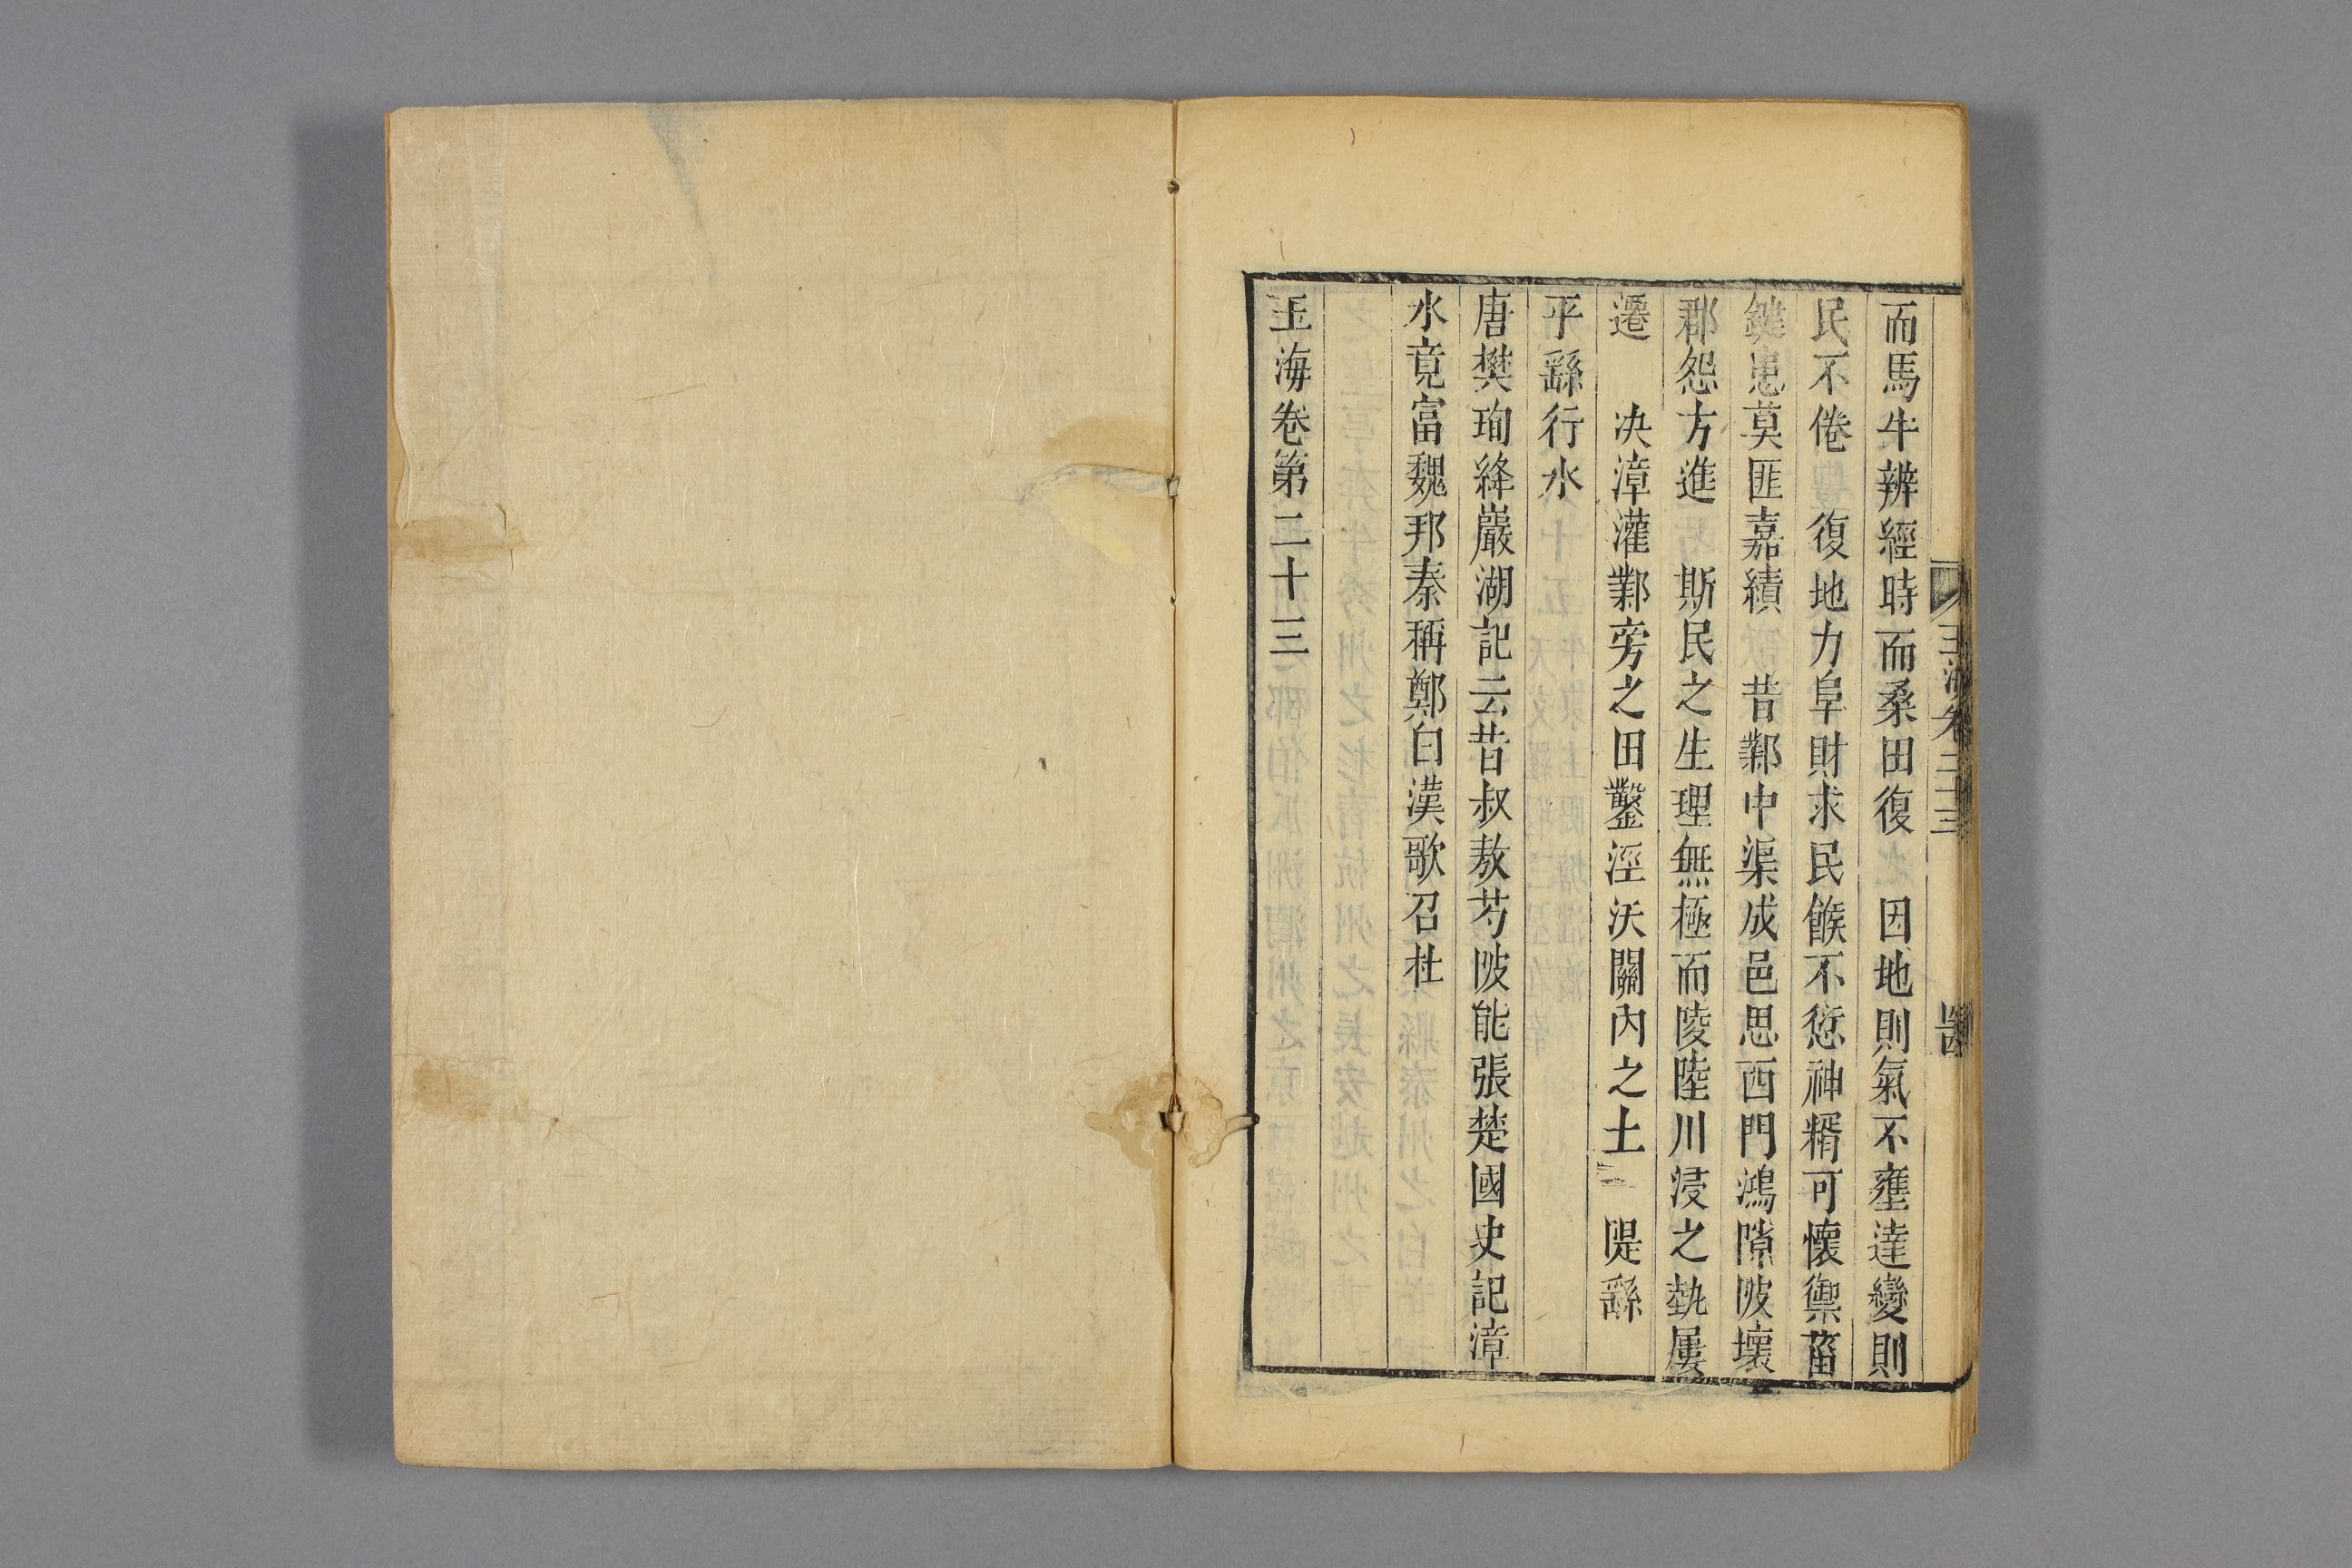 而馬牛辨經時而桑田復　因地則氣不壅達變則
民不倦　復地力阜財求民餱不愆神糈可懷禦菑
鍵患莫匪嘉績　昔鄴中渠成邑思西門鴻隙陂壞
郡怨方進　斯民之生理無極而陵陸川浸之埶屢
遷　决漳灌鄴旁之田鑿涇沃關內之土　隄繇
平繇行水
唐樊珣絳巖湖記云昔叔敖芍陂能張楚國史記漳
水竟富魏邦秦稱鄭白漢歌召杜
玉海卷第二十三
玉海卷二十三